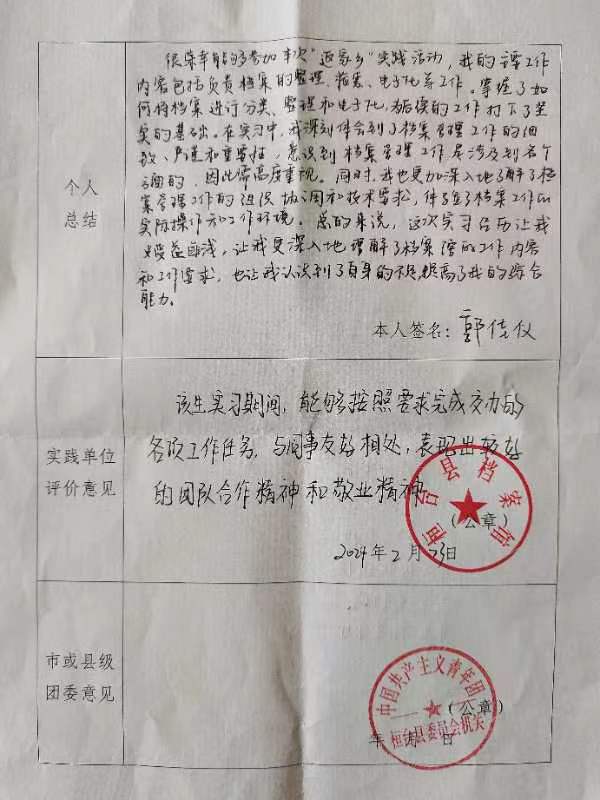 很荣幸能够参加本次"返家乡"实践活动，我的主要工作
内容包括负责档案的整理、报表、电子化等工作。掌握了如
何将档案进行分类、整理和电子化，为后续的工作打下了坚
实的基础。在实习中，我深刻体会到了档案管理工作的细
致、严谨和重要性，意识到档案管理工作是涉及到各个
方面的，因此需高度重视。同时，我也更加深入地了解了档
案管理工作的组织协调和技术要求，体验了档案工作的
实际操作和工作环境。总的来说，这次实习经历让我
受益匪浅，让我更深入地理解了档案管理的工作内容
个人
总结
和工作要求，也让我认识到了自身的不足，提高了我的综合
能力。
本人签名：郭佳仪
该生实习期间，能够按照要求完成交办的
各项工作任务，与同事友好相处，表现出较好
的团队合作精神和敬业精神
实践单位
评价意见
桓台县档案馆
（公章）
2024年2月23日
市或县级
团委意见
中国共产主义青年团
桓台县委员会机关
（公章）
年 月 日